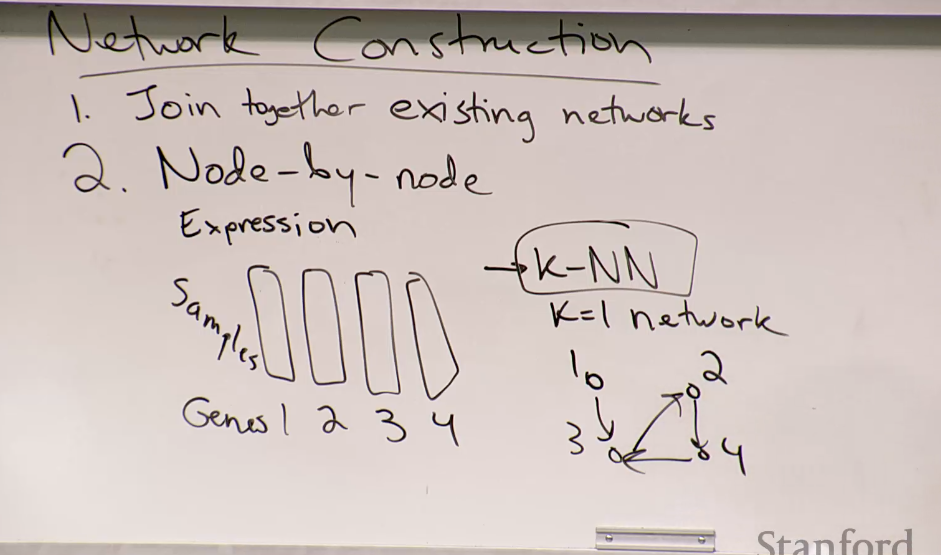 Network Construction
1. Join together existing networks
2. Node-by-node
Expression
Samples
Genes 1 2 3 4
→ K-NN
K=1 network
1 2
3 4
Stanford